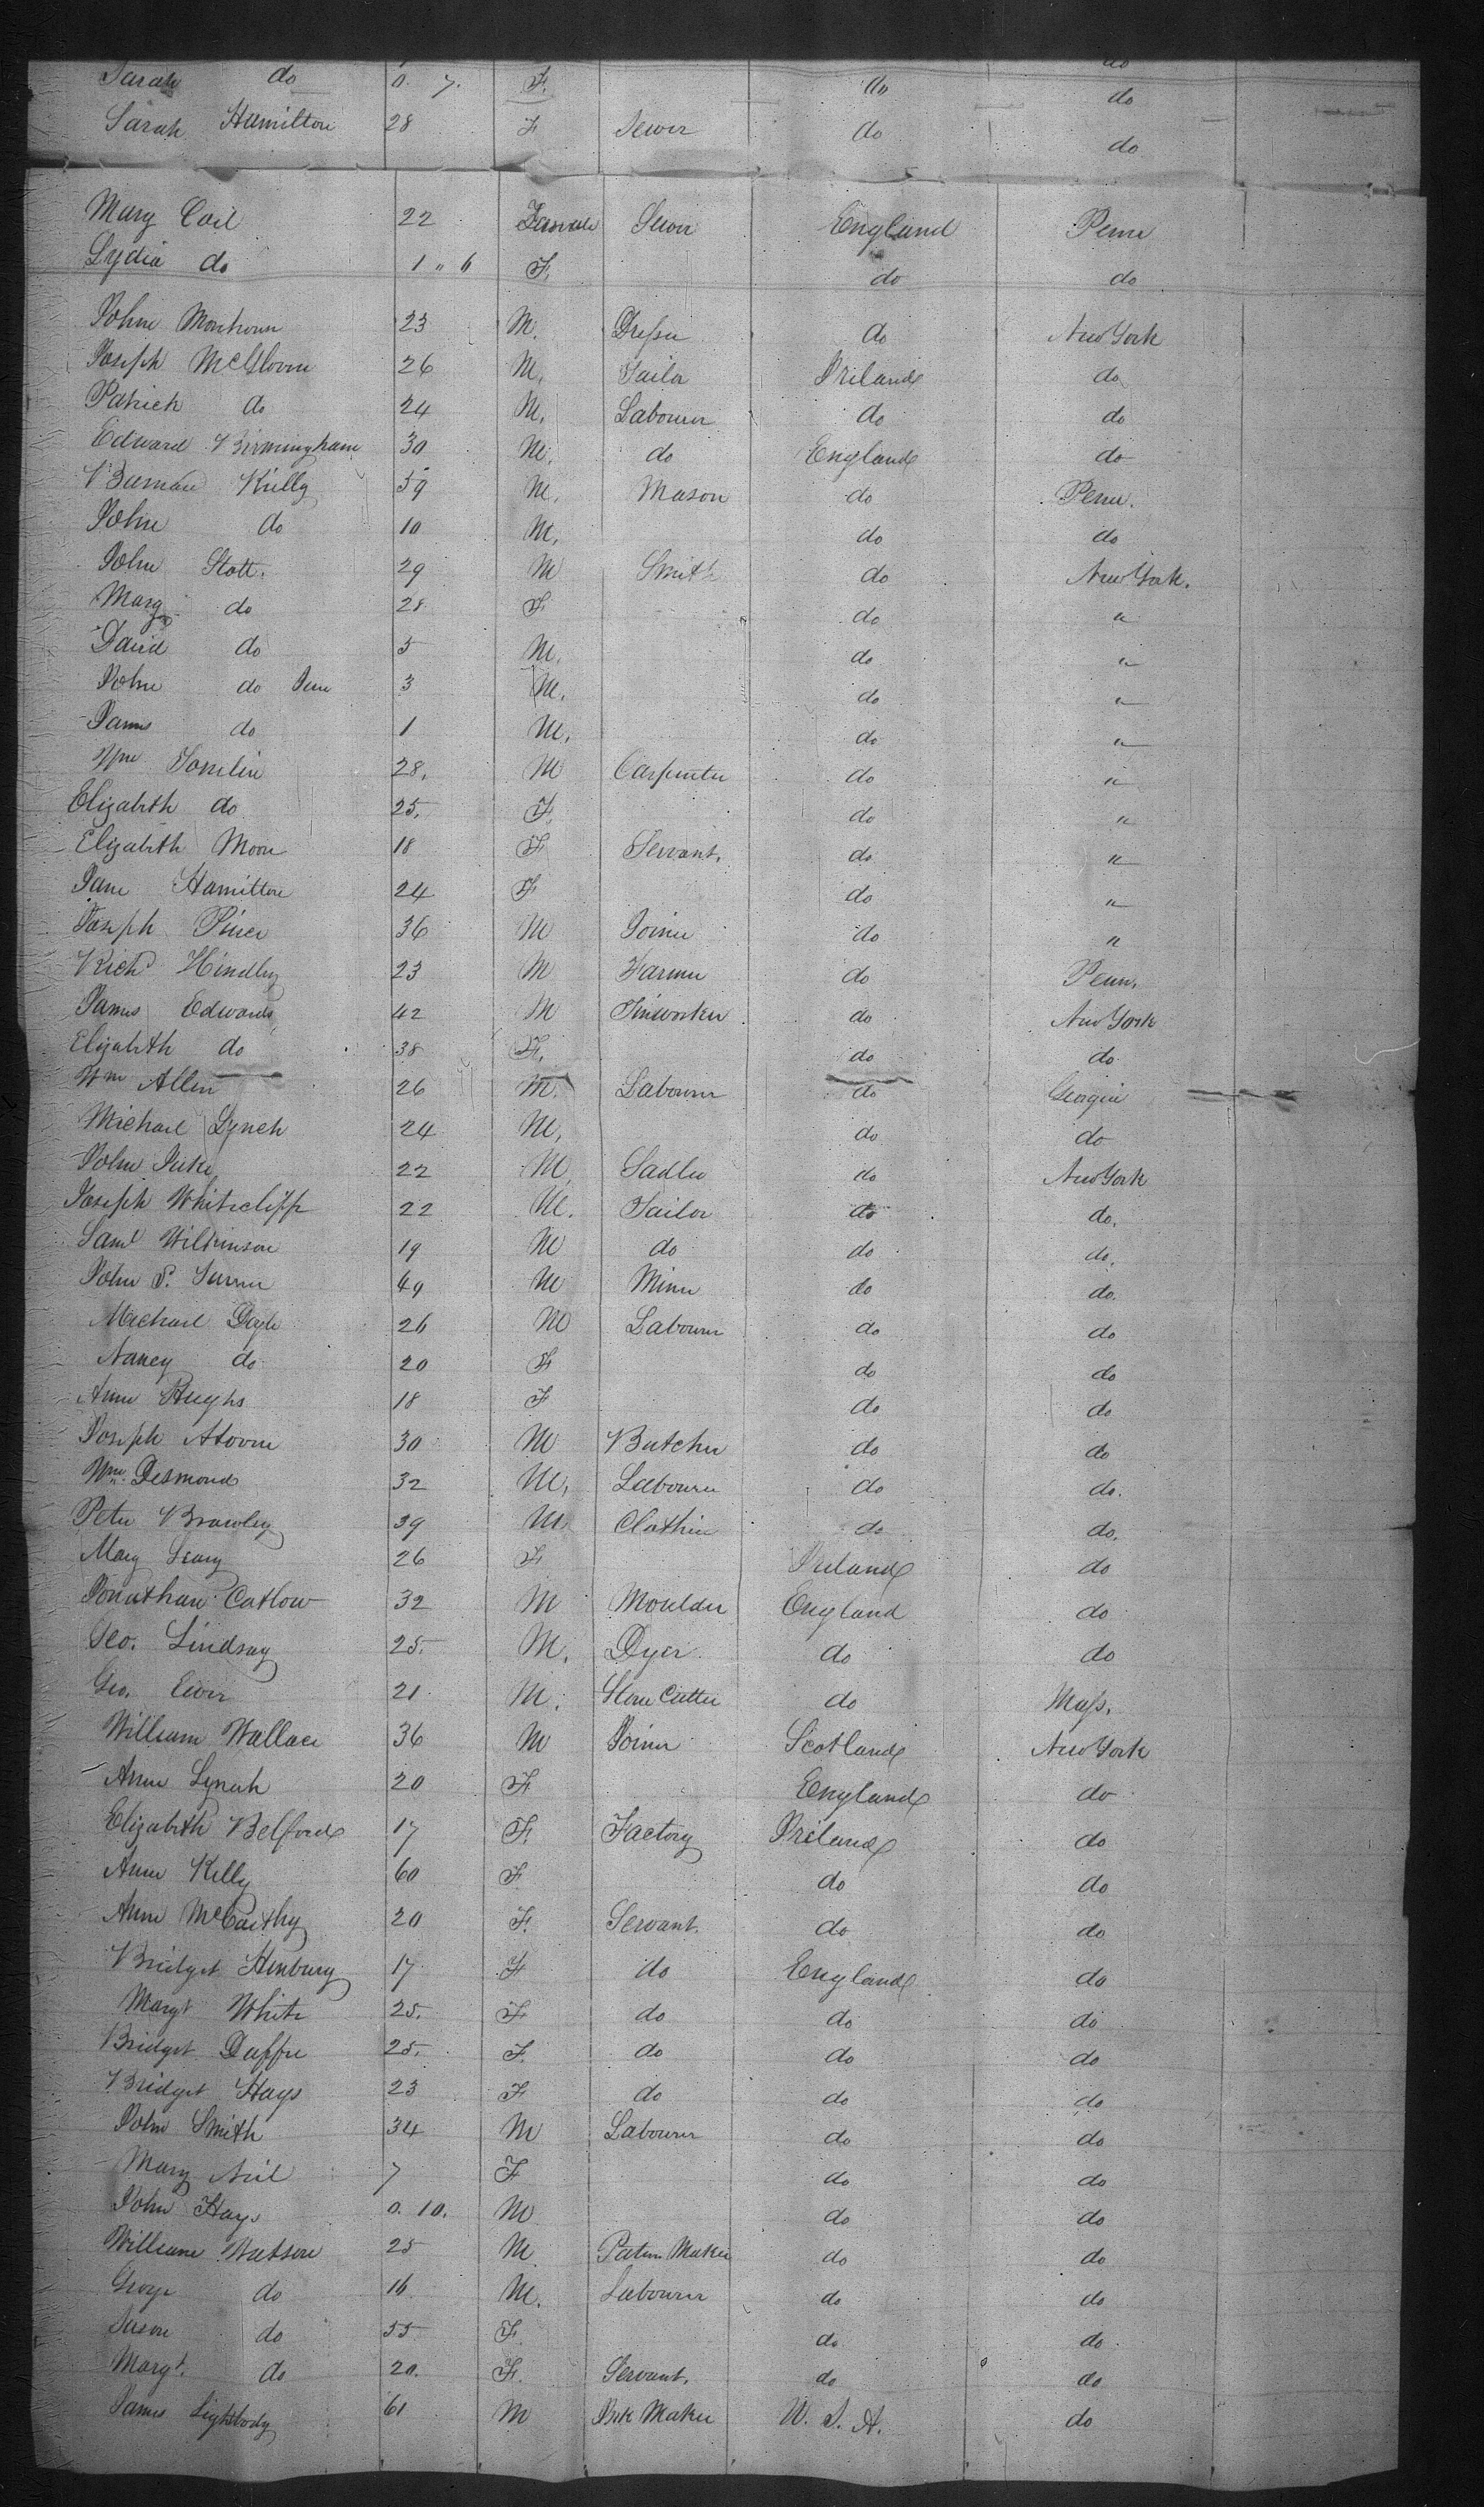 Sarah do 0. 7. F. do do
Sarah Hamilton 28 F Sewer do do
Mary Coil 22 Female Sewer England Penn
Lydia do 1 " 6 F. do do
John 23 M. Dresser do New York
Joseph McGloven 26 M. Tailor Ireland do
Patrick do 24 M. Labourer do do
Edward Birmingham 30 M. do England do
Kelly 59 M. Mason do Penn.
John do 10 M. do do
John Stott. 29 M Smith do New York.
Mary do 28 F do "
David do 5 M. do "
John do Junr 3 M. do "
James do 1 M. do "
Wm Tomlin 28. M Carpenter do "
Elizabeth do 25. F. do "
Elizabeth Moore 18 F Servant. do "
Jane Hamilton 24 F do "
Joseph 36 M Joiner do "
Richd Hindley 23 M Farmer do Penn.
James Edwards 42 M Tinworker do New York
Elizabeth do 38 F. do do
Wm Allen 26 M. Labourer do Georgia
Michael Lynch 24 M. do do
John 22 M. Sadler do New York
Joseph Whitecliff 22 M. Tailor do do.
Saml Wilkinson 19 M do do do.
John S. Turner 49 M Miner do do.
Michael Doyle 26 M Labourer do do
Nancy do 20 F do do
Anne Hughs 18 F do do
Joseph 30 M Butcher do do
Wm. Desmond 32 M. Labourer do do.
Peter Brawley 39 M. Clothier do do.
Mary Leary 26 F Ireland do
Jonathan Catlow 32 M Moulder England do
Geo. Lindsay 25. M. Dyer do do
Geo. 21 M. Stone Cutter do Mass.
William Wallace 36 M Joiner Scotland New York
Anne Lynch 20 F England do
Elizabeth Belford 17 F. Factory Ireland do
Anne Kelly 60 F do do
Anne McCarthy 20 F. Servant. do do
Bridget Henbury 17 F do England do
Margt White 25. F do do do
Bridget Duffee 25. F. do do do
Bridget Hays 23 F do do do
John Smith 34 M Labourer do do
Mary Neil 7 F do do
John Hays 0. 10. M do do
William Watson 25 M Patern Maker do do
George do 16 M. Labourer do do
Susan do 55 F. do do
Margt. do 20. F. Servant. do do
James Lightbody 61 M Maker U. S. A. do